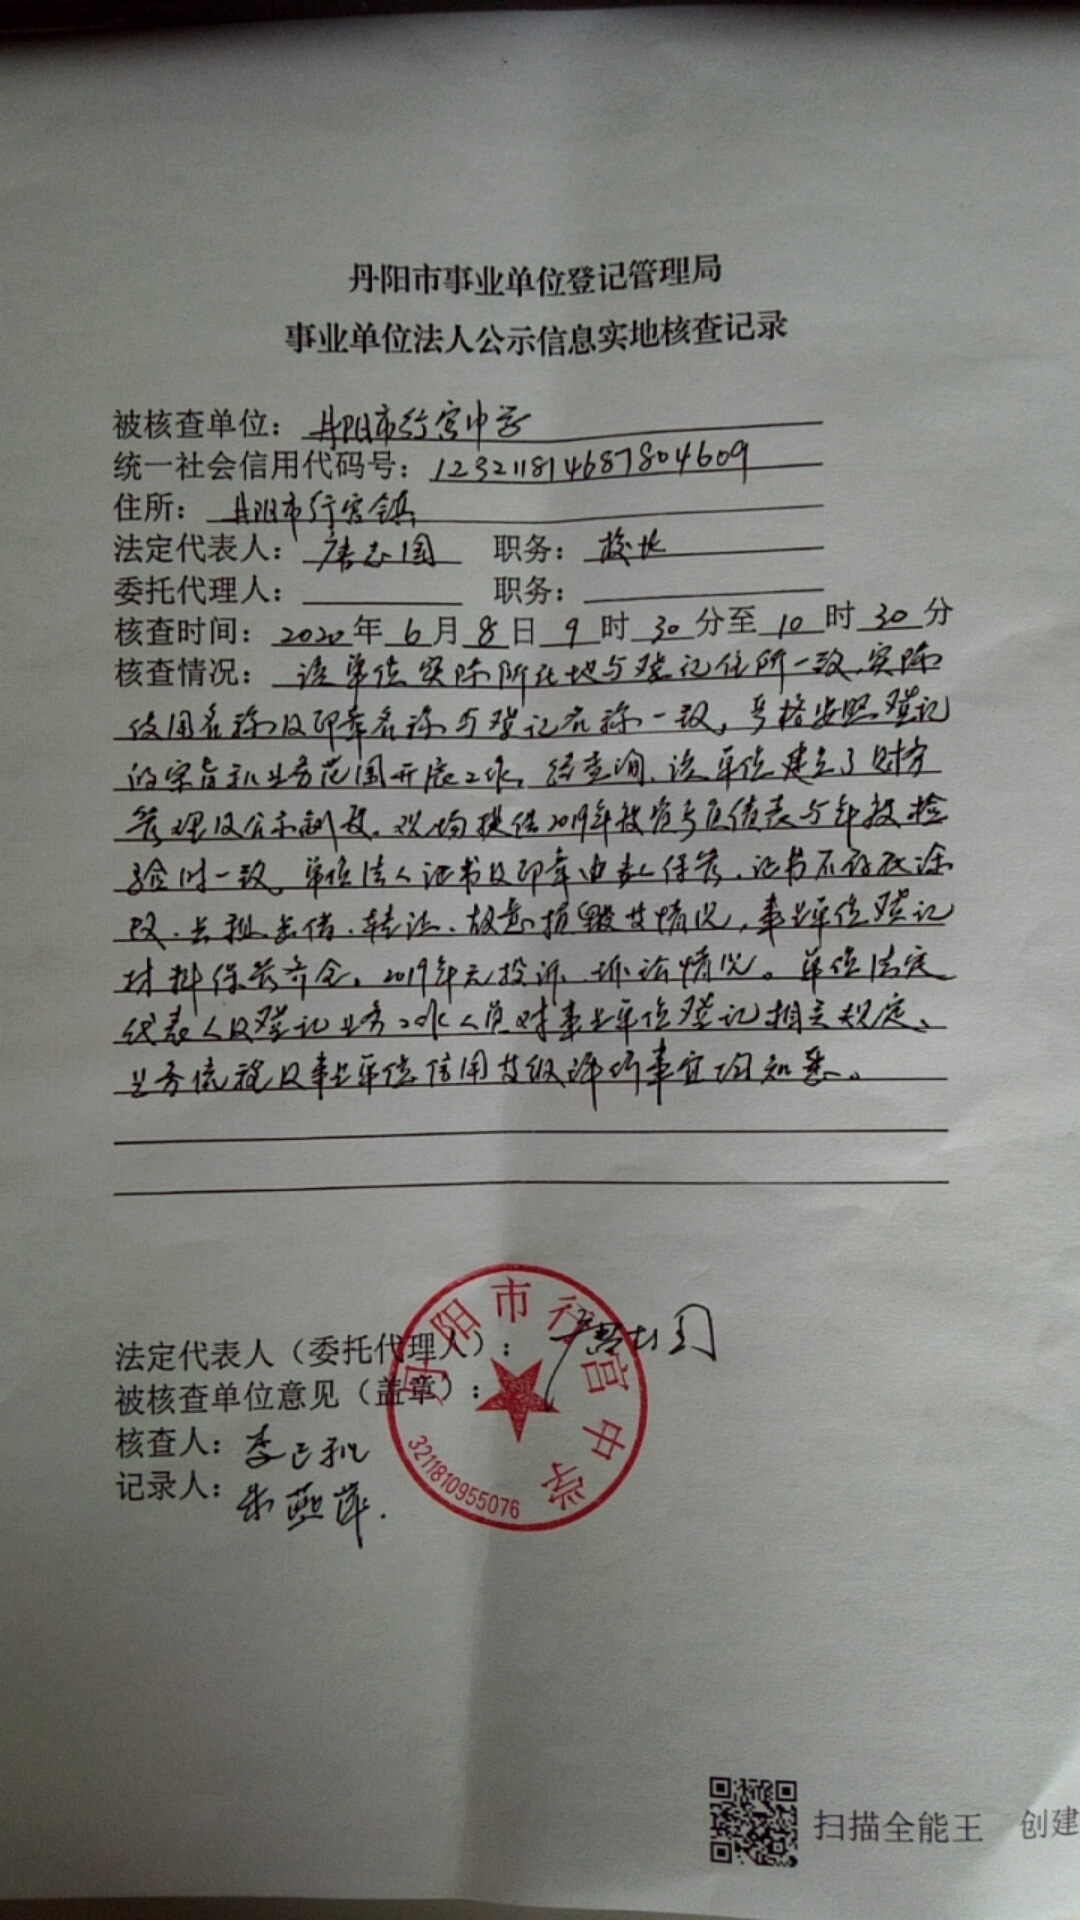 丹阳市事业单位登记管理局
事业单位法人公示信息实地核查记录
被核查单位：丹阳市行宫中学
统一社会信用代码号：123211814687804609
住所：丹阳市行宫镇
法定代表人：唐志国 职务：校长
委托代理人： 职务：
核查时间：2020年6月8日9时30分至10时30分
核查情况：该单位实际所在地与登记住所一致，实际
使用名称及印章名称与登记名称一致，严格按照登记
的宗旨和业务范围开展工作。经查询，该单位建立了财务
管理及公示制度。现场提供2019年被资产负债表与年报检
验时一致。单位法人证书及印章由专人保管，证书不存在涂
改、出租、出借、转让、故意损毁等情况，事业单位登记
材料保管齐全。2019年无投诉、诉讼情况。单位法定
代表人及登记业务工作人员对事业单位登记相关规定、
业务流程及事业单位信用等级评价事宜均知悉。
法定代表人（委托代理人）：唐志国
被核查单位意见（盖章）：
核查人：李
记录人：朱燕萍.
丹阳市行宫中学
3211810955076
扫描全能王 创建